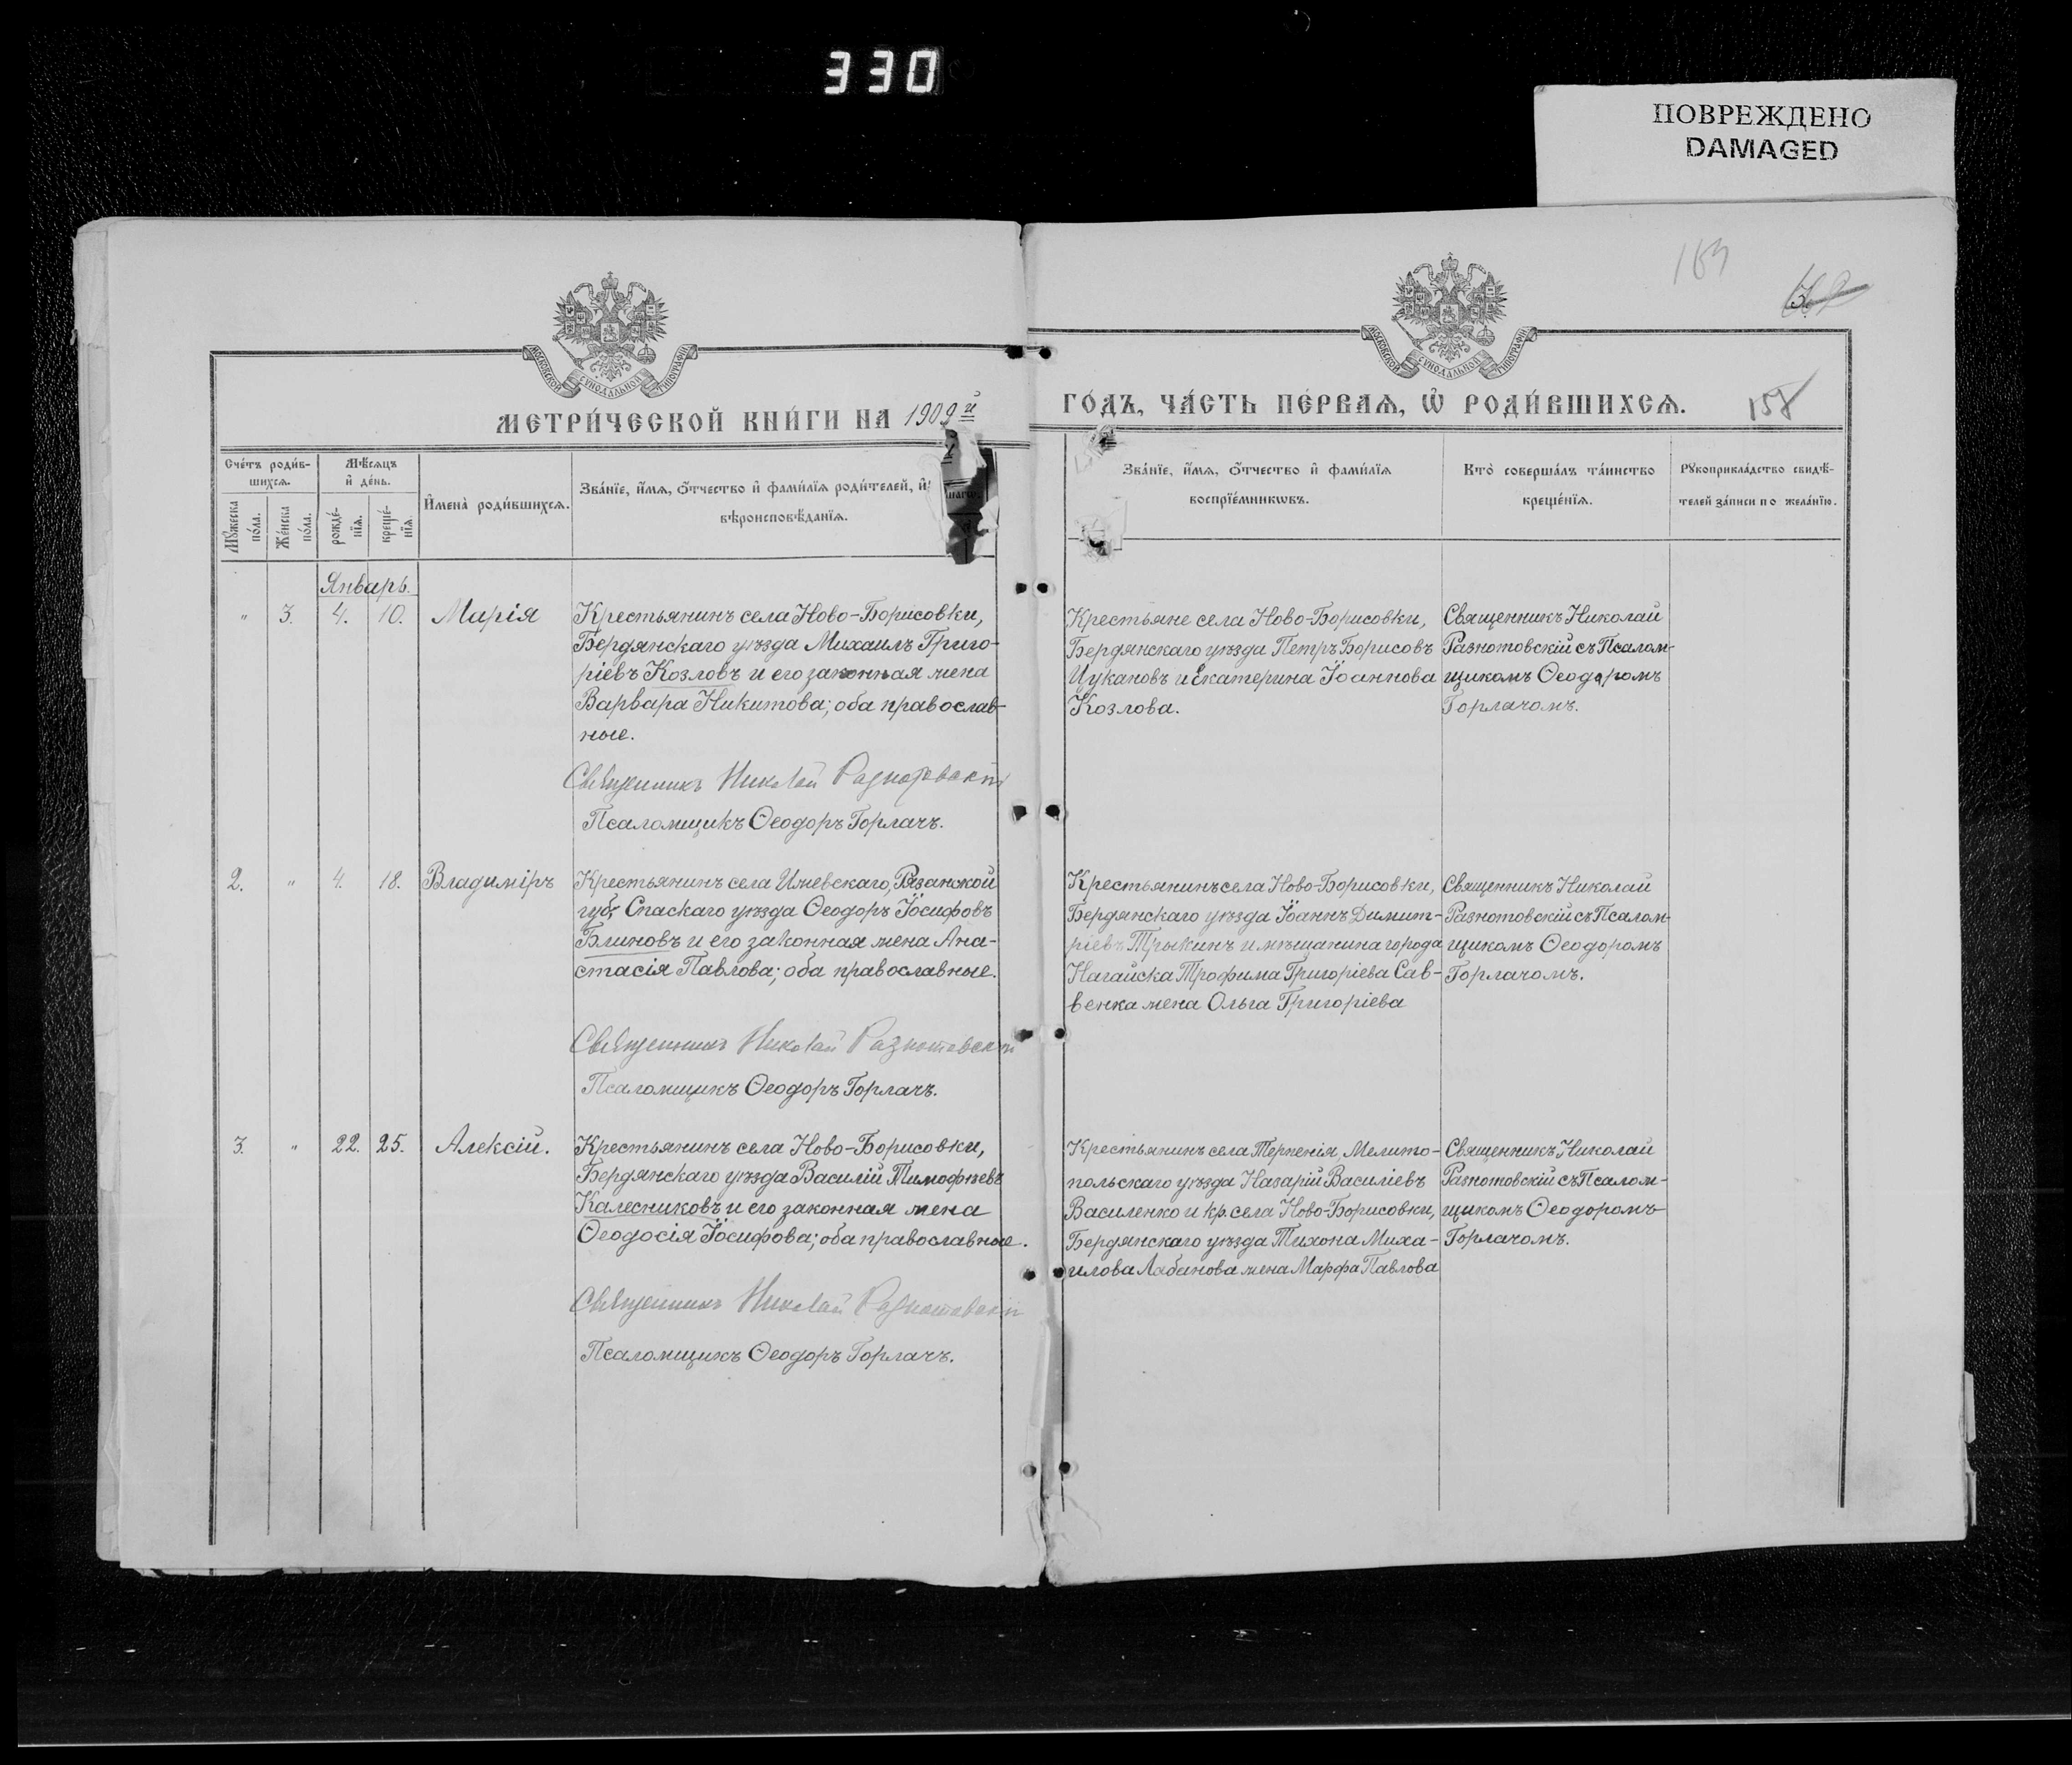 330
ПОВРЕЖДЕНО
DAMAGED
МОСКОВСКОЙ СѴНОДАЛЬНОЙ ТИПОГРАФІИ
МОСКОВСКОЙ СѴНОДАЛЬНОЙ ТИПОГРАФІИ
МЕТРИ́ЧЕСКОЙ КНИ́ГИ НА 1909й
ГО́ДЪ, ЧА́СТЬ ПЕ́РВАѦ, Ѡ҆ РОДИ́ВШИХСѦ.
158
Сче́тъ роди́в-
шихсѧ.
Мѣ́сѧцъ
и҆ де́нь.
Мꙋ́жеска
по́ла.
Же́нска
по́ла.
рожде́-
нїѧ.
креще́-
нїѧ.
И҆мена̀ роди́вшихсѧ.
Зва́нїе, и҆́мѧ, ѻ҆́тчество и҆ фами́лїѧ роди́телей, и҆
вѣроисповѣ́данїѧ.
Зва́нїе, и҆́мѧ, ѻ҆́тчество и҆ фами́лїѧ
воспрїе́мникѡвъ.
Кто̀ соверша́лъ та́инство
креще́нїѧ.
Рꙋкоприкла́дство свидѣ́-
телей за́писи по жела́нїю.
Январь.
" 3. 4. 10. Марія
Крестьянинъ села Ново-Борисовки,
Бердянскаго уѣзда Михаилъ Григо-
ріевъ Козловъ и его законная жена
Варвара Никитова; оба православ-
ные.
Священникъ Николай Разнотовскій
Псаломщикъ Ѳеодоръ Горлачъ.
Крестьяне села Ново-Борисовки,
Бердянскаго уѣзда Петръ Борисовъ
Цукановъ и Екатерина Іоаннова
Козлова.
Священникъ Николай
Разнотовскій съ Псалом-
щикомъ Ѳеодоромъ
Горлачомъ.
2. " 4. 18. Владиміръ
Крестьянинъ села Ижевскаго, Рязанской
губ. Спаскаго уѣзда Ѳеодоръ Іосифовъ
Блиновъ и его законная жена Ана-
стасія Павлова; оба православные.
Священникъ Николай Разнотовскій
Псаломщикъ Ѳеодоръ Горлачъ.
Крестьянинъ села Ново-Борисовки,
Бердянскаго уѣзда Іоаннъ Димит-
ріевъ Трыкинъ и мѣщанина города
Нагайска Трофима Григоріева Сав-
венка жена Ольга Григоріева
Священникъ Николай
Разнотовскій съ Псалом-
щикомъ Ѳеодоромъ
Горлачомъ.
3. " 22. 25. Алексій.
Крестьянинъ села Ново-Борисовки,
Бердянскаго уѣзда Василій Тимофѣевъ
Калесниковъ и его законная жена
Ѳеодосія Іосифова; оба православные.
Священникъ Николай Разнотовскій
Псаломщикъ Ѳеодоръ Горлачъ.
Крестьянинъ села Терпенія, Мелито-
польскаго уѣзда Назарій Василіевъ
Василенко и кр. села Ново-Борисовки,
Бердянскаго уѣзда Тихона Миха-
илова Лабанова жена Марфа Павлова
Священникъ Николай
Разнотовскій съ Псалом-
щикомъ Ѳеодоромъ
Горлачомъ.